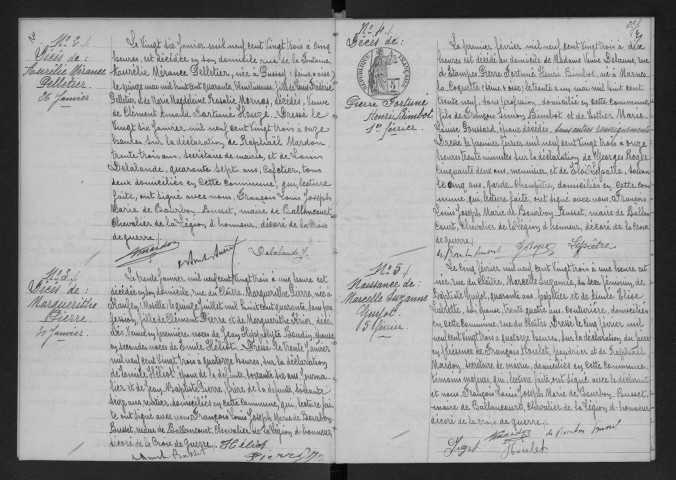 No 2.
Décès de:
Aurélie Mérance
Pelletier.
26 Janvier.
Le vingt six Janvier mil neuf cent vingt trois à cinq
heures, est décédée en son domicile rue de la Fontaine
Aurélie Mérance Pelletier, née à
le quinze mai mil huit cent quarante
Pelletier et de Marie Magdeleine Rosalie décédés, Veuve
de Clément Dressé le
vingt six Janvier mil neuf cent vingt trois à onze
heures sur la déclaration de Raphaël Mardon,
trente trois ans, secrétaire de mairie, et de Louis
Delalande, quarante sept ans, cafetier, tous
deux domiciliés en cette commune, qui, lecture
faite, ont signé avec nous, François Louis Joseph
Marie de Bourbon Busset, maire de Ballancourt,
Chevalier de la Légion d'honneur, décoré de la Croix
de guerre.
Mardon
Delalande
No 3.
Décès de:
Marguerithe
Pierre.
30 Janvier.
Le trente Janvier mil neuf cent vingt trois à une heure est
décédée en son domicile, rue du Cloître, Marguerithe Pierre, née à
le quinze Juillet mil huit cent quarante sans pro
fession, fille de Clément Pierre et de Marguerithe décé
dés, Veuve en premières noces de Jean Hippolyte Épouse
en secondes noces de Emile Héliot. Dressé le trente Janvier
mil neuf cent vingt trois à quatorze heures, sur la déclaration
de Emile Héliot, époux de la défunte, soixante six ans, journa
lier et de Jean Baptiste Pierre, frère de la défunte, soixante
seize ans, rentier, domiciliés en cette commune, qui, lecture fai
te ont signé avec nous François Louis Joseph Marie de Bourbon
Busset, maire de Ballancourt, Chevalier de la Légion d'honneur
décoré de la Croix de guerre.
Héliot
Pierre
No 4.
Décès de:
Pierre Fortuné
Henri Bimbot.
1er février.
Le premier février mil neuf cent vingt trois à dix
heures est décédé en domicile de Madame Veuve Delaune, rue
d'Etampes Pierre Fortuné Henri Bimbot, né à
le trente et un mai mil huit cent
trente neuf, sans profession, domicilié en cette commune,
fils de François Simon Bimbot et de Marie
Louise époux décédés, sans autres renseignements.
Dressé le premier février mil neuf cent vingt trois à onze
heures trente minutes sur la déclaration de Georges Roger
cinquante deux ans, menuisier et de Eloi Lepaitre, soixan
te cinq ans, garde champêtre, domiciliés en cette com
mune qui, lecture faite, ont signé avec nous, François
Louis Joseph Marie de Bourbon Busset, maire de Ballan
court, Chevalier de la Légion d'honneur, décoré de la croix
de guerre.
de Bourbon Busset
GRoger
No 5.
Naissance de:
Marcelle Suzanne
5 février.
Le cinq février mil neuf cent vingt trois à une heure est
née, rue du Cloître, Marcelle Suzanne, du sexe féminin, de
Baptiste quarante ans, et de Emilie Elise
son épouse, trente quatre ans, couturière, domiciliés
en cette commune, rue du Cloître. Dressé le cinq février mil
neuf cent vingt trois à quatorze heures, sur la déclaration du père
en présence de François et de Raphaël
Mardon, secrétaire de mairie, domiciliés en cette commune
témoins majeurs, qui, lecture faite, ont signé avec le déclarant
et nous, François Louis Joseph Marie de Bourbon-Busset,
maire de Ballancourt, Chevalier de la Légion d'honneur
décoré de la croix de guerre.
Mardon
de Bourbon Busset